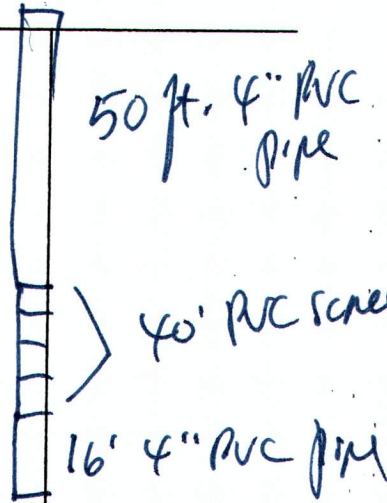 50 ft. 4" PVC
pipe
40' PVC scree
16' 4" PVC pipe